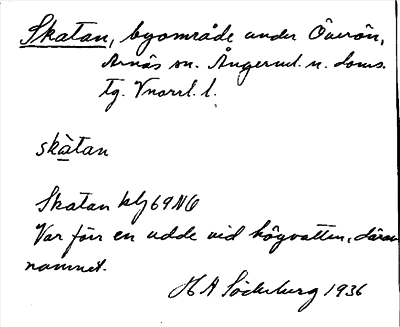 Skatan, byområde under Överön,
Arnäs sn. Ångerml. n. doms.
tg. Vnorrl. l.
skàtan
Skatan kbl 69 NO
Var förr en udde vid högvatten, därav
namnet.
H A Söderberg 1936